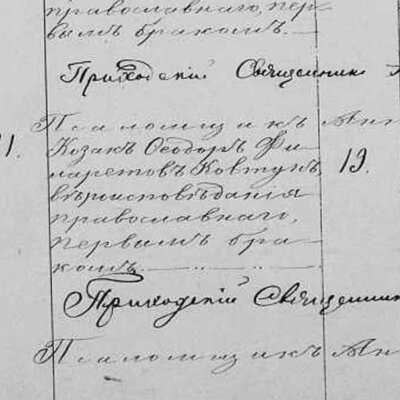 православнаго, пер
вымъ бракомъ.
Приходскій Священникъ
Псаломщикъ Ан
21. Козакъ Ѳеодоръ Фи
ларетовъ Ковтунъ, 19.
вѣроисповѣданія
православнаго,
первымъ бра
комъ.
Приходскій Священник
Псаломщикъ Ан